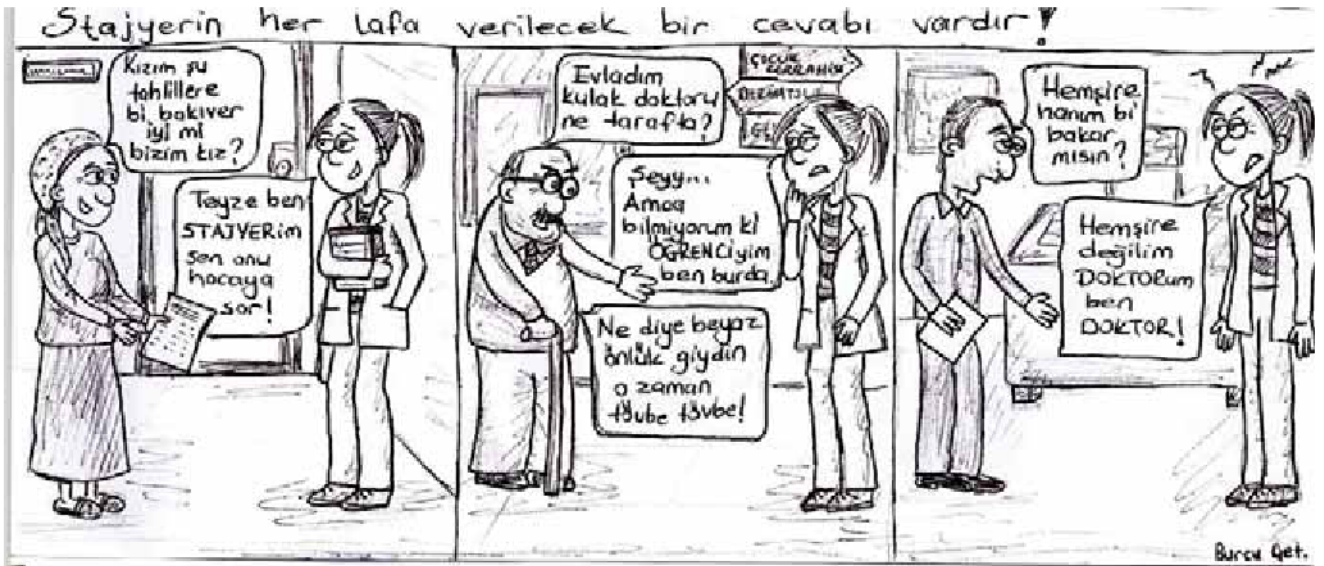 Stajyerin her lafa verilecek bir cevabı vardır!
Kızım şu
tahlillere
bi bakıver
iyi mi
bizim kız?
Teyze ben
STAJYERim
sen onu
hocaya
sor!
Evladım
kulak doktoru
ne tarafta?
ÇOCUK
CERRAHİSİ
Şeyy...
Amca
bilmiyorum ki
ÖĞRENCİyim
ben burda.
Ne diye beyaz
önlük giydin
o zaman
tövbe tövbe!
Hemşire
hanım bi
bakar
mısın?
Hemşire
değilim
DOKTORum
ben
DOKTOR!
Burcu Çet.